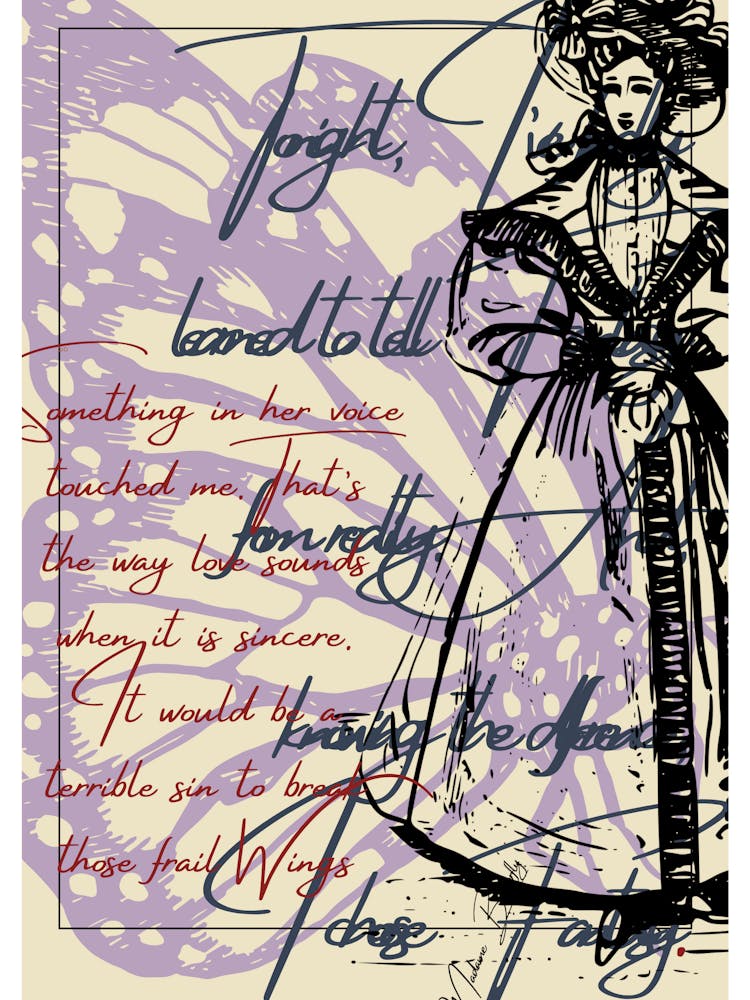 Tonight, I've
learned to tell
from reality. And,
knowing the difference
I choose Fantasy.
Something in her voice
touched me. That's
the way love sounds
when it is sincere.
It would be a
terrible sin to break
those frail Wings
Madame Butterfly